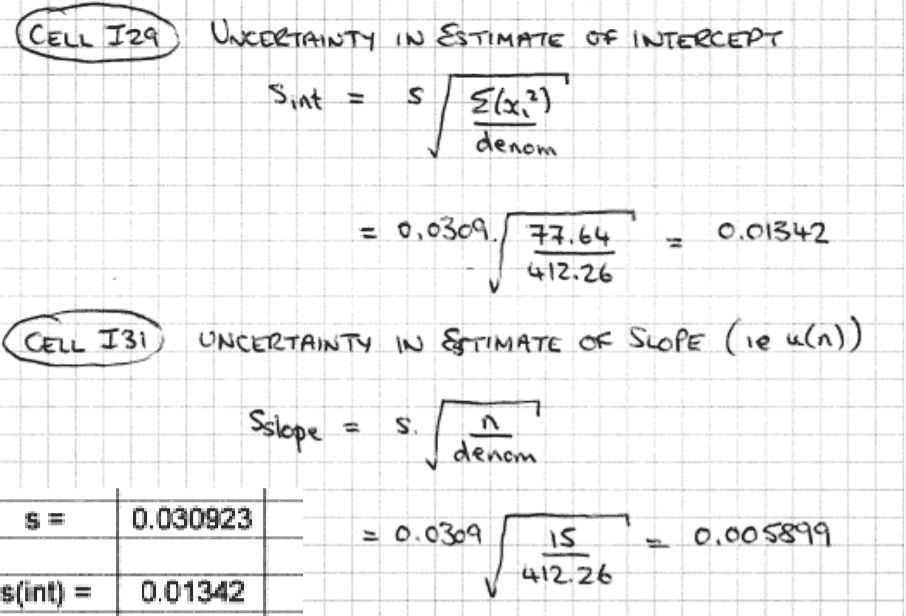 CELL I29 UNCERTAINTY IN ESTIMATE OF INTERCEPT
Sint = s √(Σ(xi²) / denom)
= 0.0309. √(77.64 / 412.26) = 0.01342
CELL I31 UNCERTAINTY IN ESTIMATE OF SLOPE (ie u(n))
Sslope = s. √(n / denom)
= 0.0309 √(15 / 412.26) = 0.005899
s = 0.030923
s(int) = 0.01342